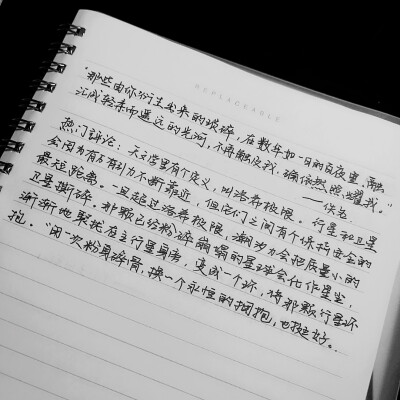 REPLACEABLE
"那些由你衍生出来的破碎,在数年如一日的百夜里,融
汇成轻柔而遥远的光河,不再触及我,确依然照耀我。"
——佚名
热门评论:天文学里有个定义,叫洛希极限。行星和卫星
会因为有万有引力不断靠近,但它们之间有个保持安全的
最短距离。一旦超过洛希极限,潮汐力会把质量小的
卫星撕碎。那颗已经粉碎崩塌的星球会化作星尘,
渐渐地聚拢在主行星身旁,变成一个环,将那颗行星环
抱。"用一次粉身碎骨,换一个永恒的拥抱,也挺好。"